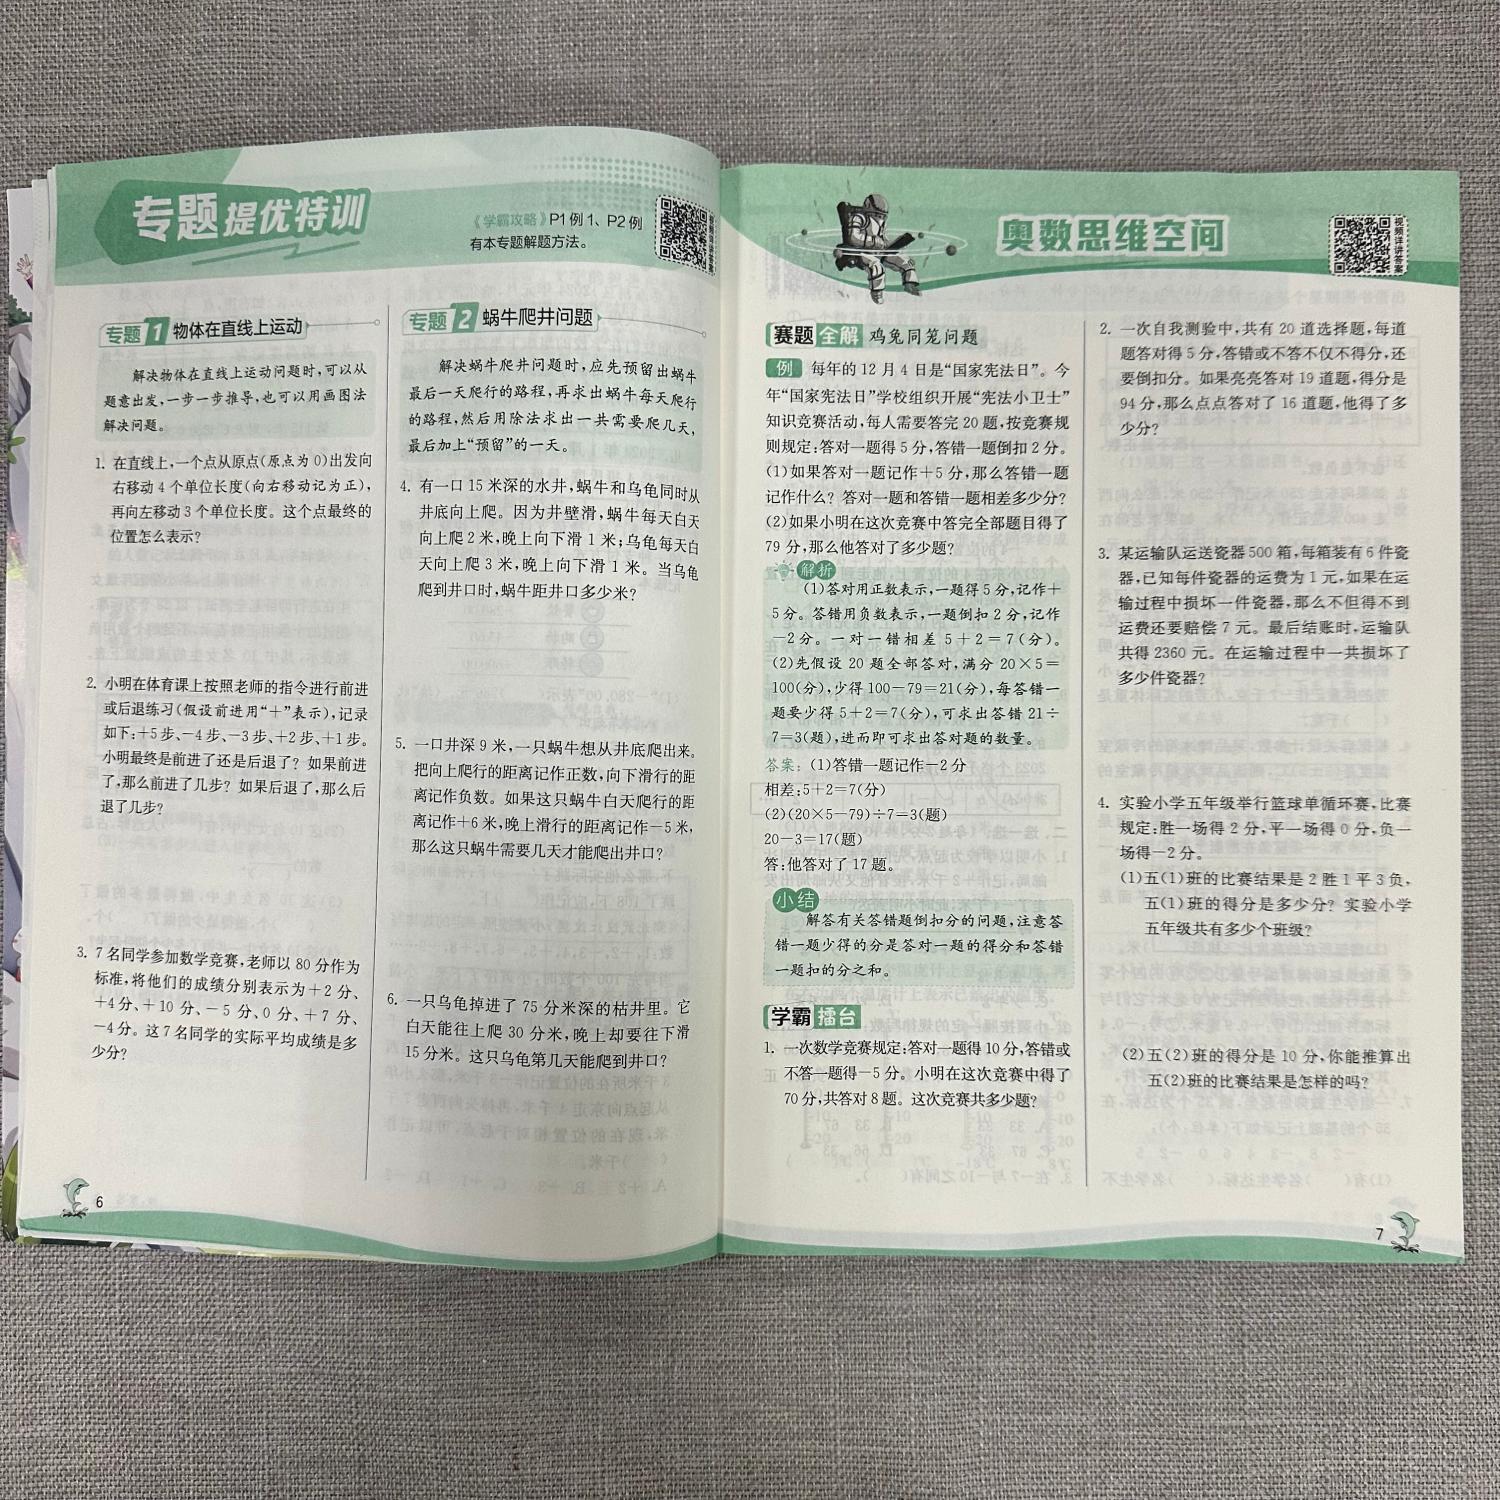 专题提优特训
《学霸攻略》P1例1、P2例
有本专题解题方法。
视频详讲答案
专题1 物体在直线上运动
解决物体在直线上运动问题时,可以从
题意出发,一步一步推导,也可以用画图法
解决问题。
1. 在直线上,一个点从原点(原点为0)出发向
右移动4个单位长度(向右移动记为正),
再向左移动3个单位长度。这个点最终的
位置怎么表示?
2. 小明在体育课上按照老师的指令进行前进
或后退练习(假设前进用“+”表示),记录
如下:+5步、-4步、-3步、+2步、+1步。
小明最终是前进了还是后退了?如果前进
了,那么前进了几步?如果后退了,那么后
退了几步?
3. 7名同学参加数学竞赛,老师以80分作为
标准,将他们的成绩分别表示为+2分、
+4分、+10分、-5分、0分、+7分、
-4分。这7名同学的实际平均成绩是多
少分?
专题2 蜗牛爬井问题
解决蜗牛爬井问题时,应先预留出蜗牛
最后一天爬行的路程,再求出蜗牛每天爬行
的路程,然后用除法求出一共需要爬几天,
最后加上“预留”的一天。
4. 有一口15米深的水井,蜗牛和乌龟同时从
井底向上爬。因为井壁滑,蜗牛每天白天
向上爬2米,晚上向下滑1米;乌龟每天白
天向上爬3米,晚上向下滑1米。当乌龟
爬到井口时,蜗牛距井口多少米?
5. 一口井深9米,一只蜗牛想从井底爬出来。
把向上爬行的距离记作正数,向下滑行的距
离记作负数。如果这只蜗牛白天爬行的距
离记作+6米,晚上滑行的距离记作-5米,
那么这只蜗牛需要几天才能爬出井口?
6. 一只乌龟掉进了75分米深的枯井里。它
白天能往上爬30分米,晚上却要往下滑
15分米。这只乌龟第几天能爬到井口?
6
奥数思维空间
视频详讲答案
赛题全解 鸡兔同笼问题
例 每年的12月4日是“国家宪法日”。今
年“国家宪法日”学校组织开展“宪法小卫士”
知识竞赛活动,每人需要答完20题,按竞赛规
则规定:答对一题得5分,答错一题倒扣2分。
(1)如果答对一题记作+5分,那么答错一题
记作什么?答对一题和答错一题相差多少分?
(2)如果小明在这次竞赛中答完全部题目得了
79分,那么他答对了多少题?
解析
(1)答对用正数表示,一题得5分,记作+
5分。答错用负数表示,一题倒扣2分,记作
-2分。一对一错相差5+2=7(分)。
(2)先假设20题全部答对,满分20×5=
100(分),少得100-79=21(分),每答错一
题要少得5+2=7(分),可求出答错21÷
7=3(题),进而即可求出答对题的数量。
答案:(1)答错一题记作-2分
相差:5+2=7(分)
(2)(20×5-79)÷7=3(题)
20-3=17(题)
答:他答对了17题。
小结
解答有关答错题倒扣分的问题,注意答
错一题少得的分是答对一题的得分和答错
一题扣的分之和。
学霸擂台
1. 一次数学竞赛规定:答对一题得10分,答错或
不答一题得-5分。小明在这次竞赛中得了
70分,共答对8题。这次竞赛共多少题?
2. 一次自我测验中,共有20道选择题,每道
题答对得5分,答错或不答不仅不得分,还
要倒扣分。如果亮亮答对19道题,得分是
94分,那么点点答对了16道题,他得了多
少分?
3. 某运输队运送瓷器500箱,每箱装有6件瓷
器,已知每件瓷器的运费为1元,如果在运
输过程中损坏一件瓷器,那么不但得不到
运费还要赔偿7元。最后结账时,运输队
共得2360元。在运输过程中一共损坏了
多少件瓷器?
4. 实验小学五年级举行篮球单循环赛,比赛
规定:胜一场得2分,平一场得0分,负一
场得-2分。
(1)五(1)班的比赛结果是2胜1平3负,
五(1)班的得分是多少分?实验小学
五年级共有多少个班级?
(2)五(2)班的得分是10分,你能推算出
五(2)班的比赛结果是怎样的吗?
7